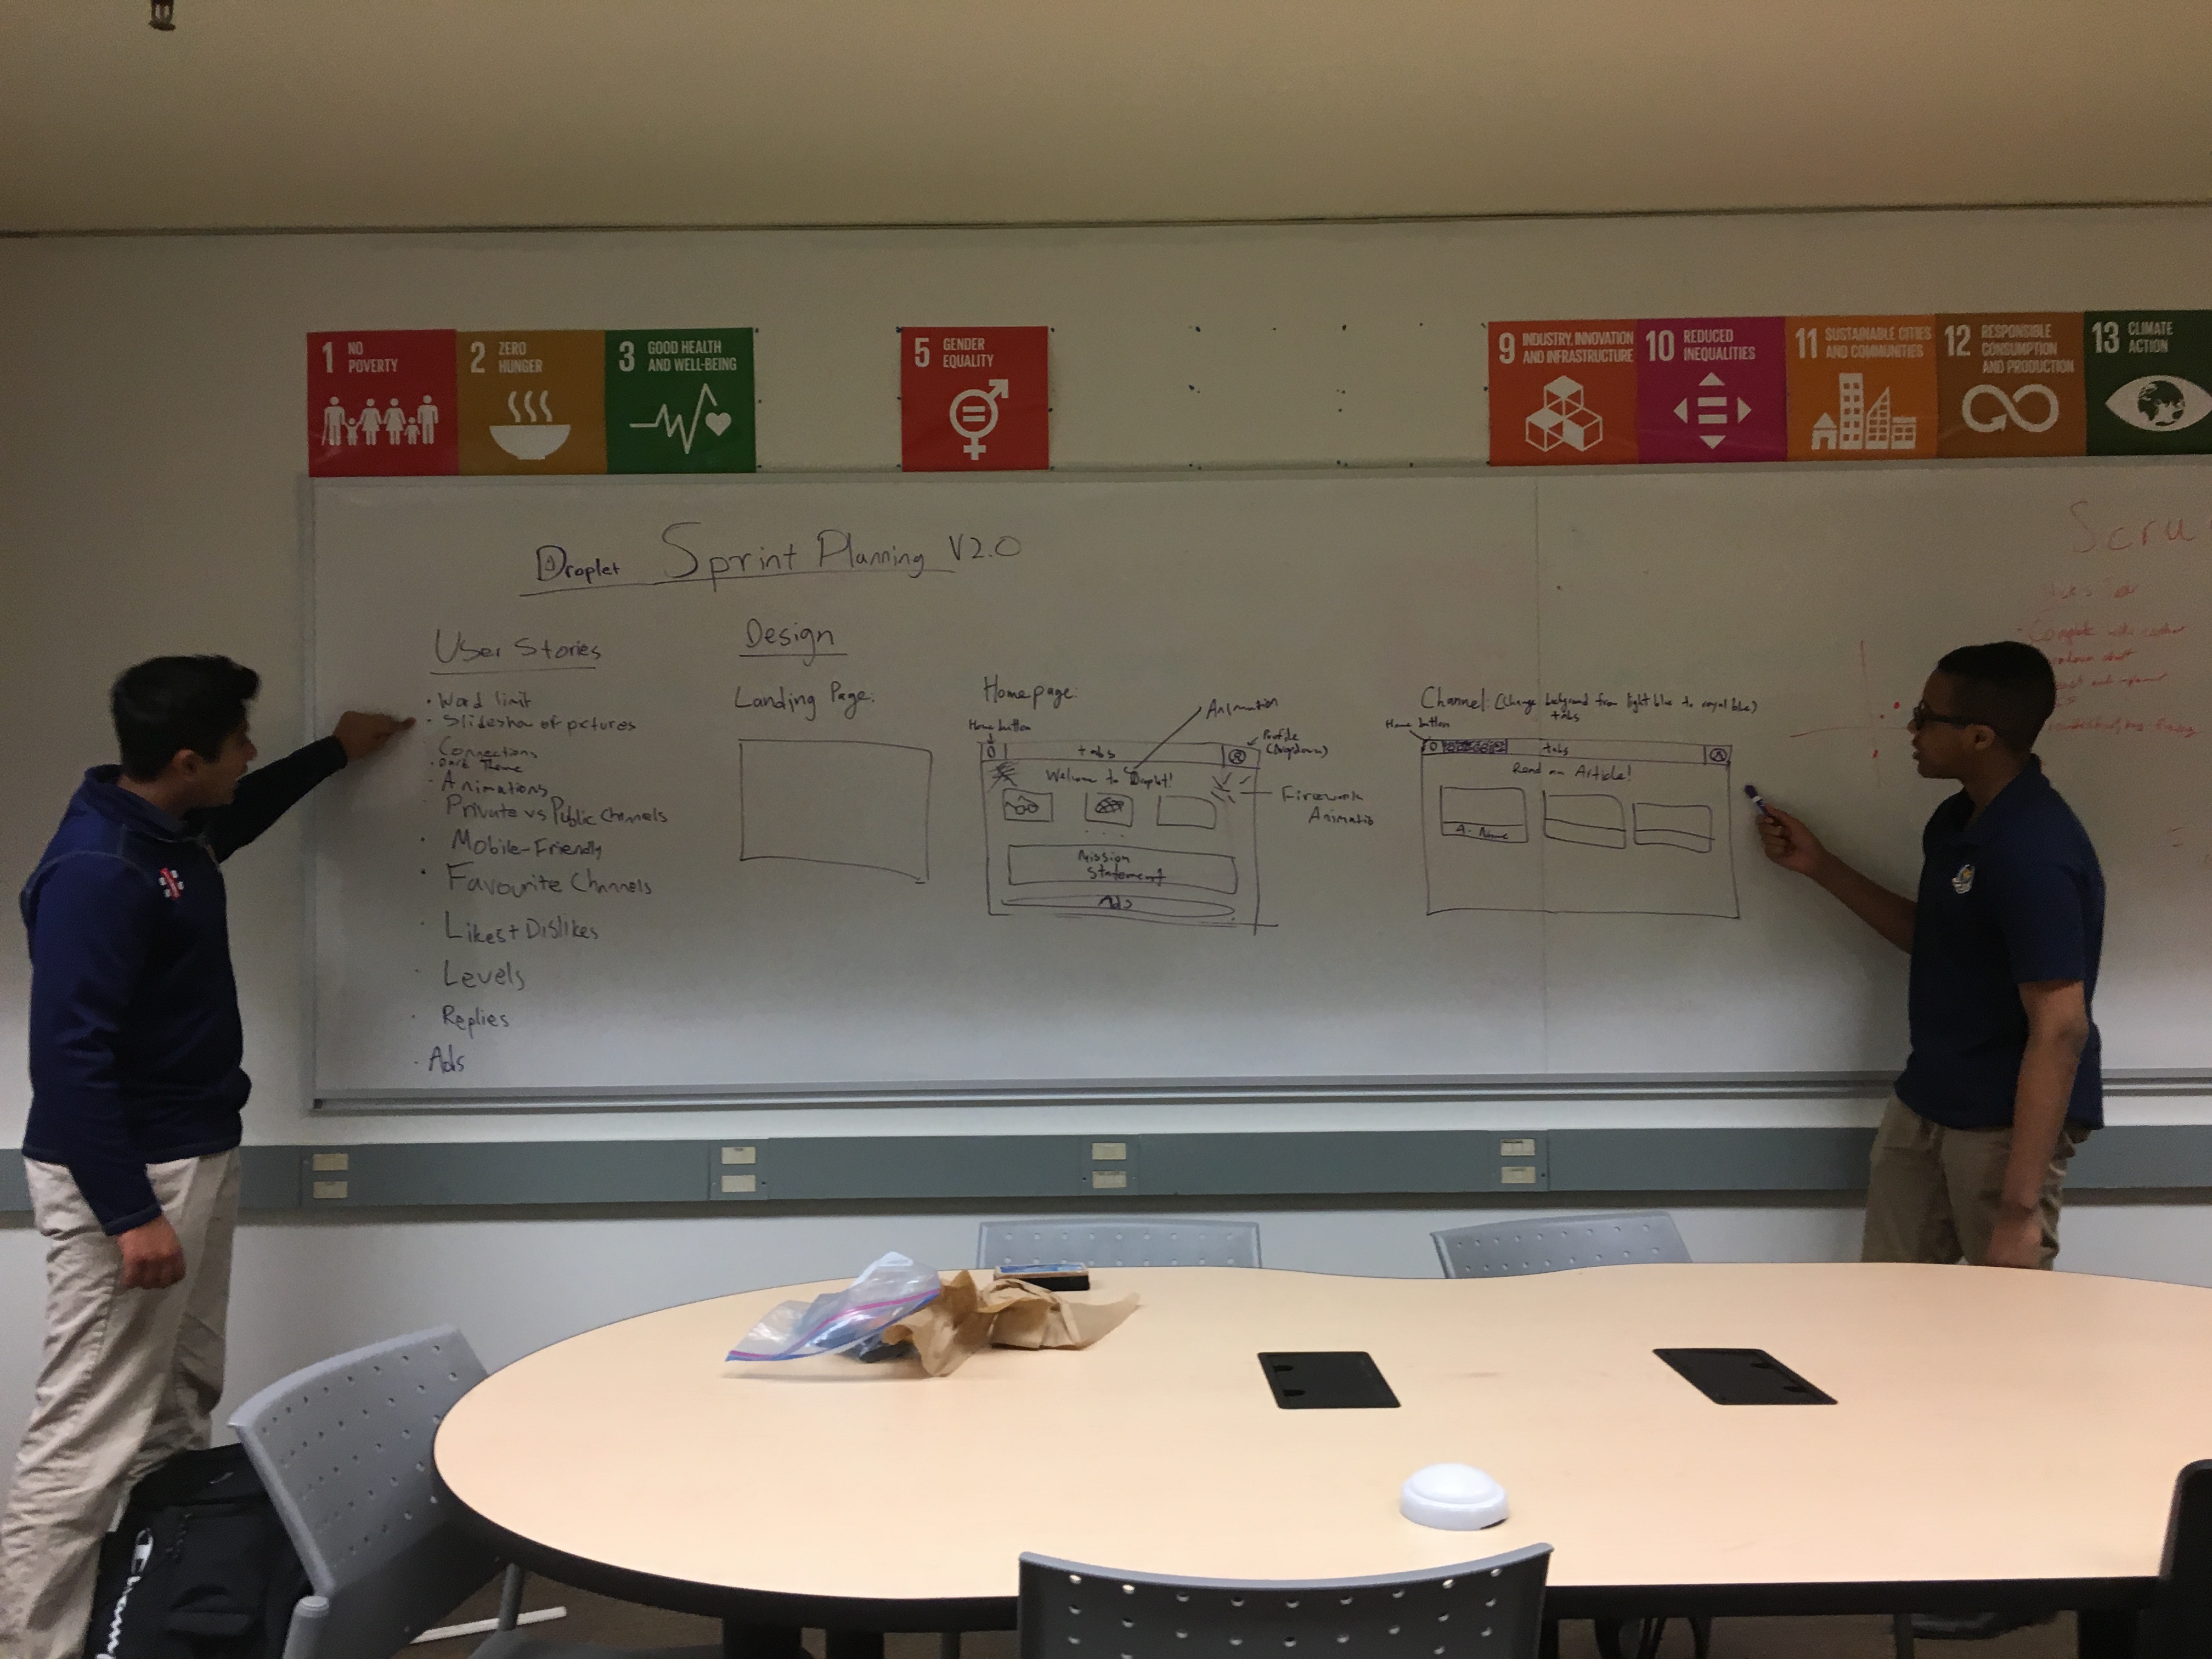 1 NO POVERTY
2 ZERO HUNGER
3 GOOD HEALTH AND WELL-BEING
5 GENDER EQUALITY
9 INDUSTRY, INNOVATION AND INFRASTRUCTURE
10 REDUCED INEQUALITIES
11 SUSTAINABLE CITIES AND COMMUNITIES
12 RESPONSIBLE CONSUMPTION AND PRODUCTION
13 CLIMATE ACTION
Droplet Sprint Planning V2.0
User Stories
• Word limit
• Slideshow of pictures
Connections
• Dark Theme
• Animations
• Private vs Public Channels
• Mobile-Friendly
• Favourite Channels
• Likes + Dislikes
• Levels
• Replies
• Ads
Design
Landing Page:
Homepage:
Home button
tabs
Animation
Profile
(Dropdown)
Welcome to Droplet!
Firework
Animatio
Mission
Statement
Ads
Channel: (Change background from light blue to royal blue)
tabs
Home button
tabs
Read an Article!
A. Name
Scru
Champion